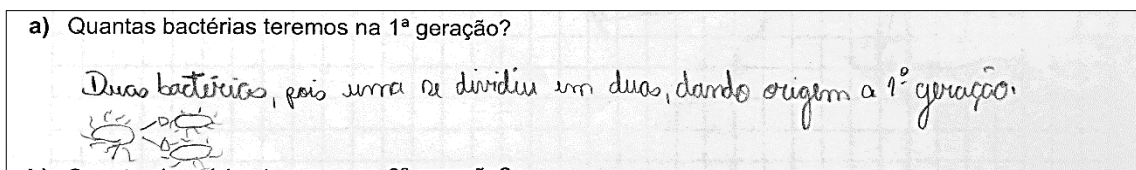 a) Quantas bactérias teremos na 1ª geração?
Duas bactérias, pois uma se dividiu em duas, dando origem a 1º geração.